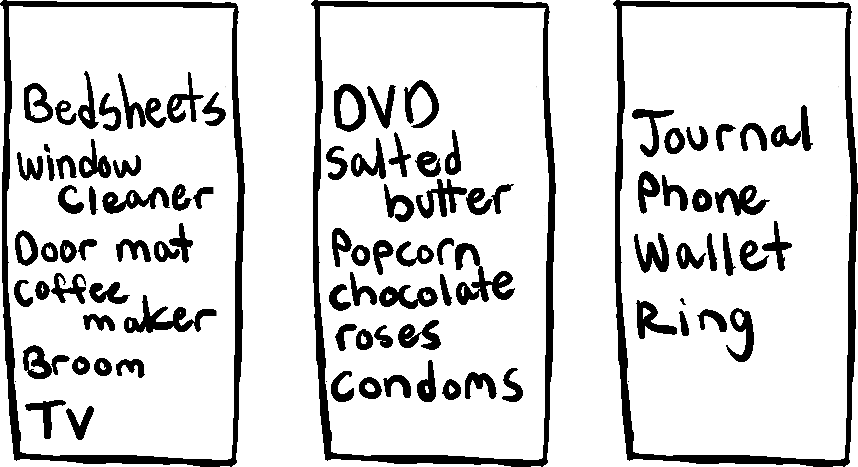 Bedsheets
window
cleaner
Door mat
coffee
maker
Broom
TV
DVD
salted
butter
Popcorn
chocolate
roses
condoms
Journal
Phone
Wallet
Ring